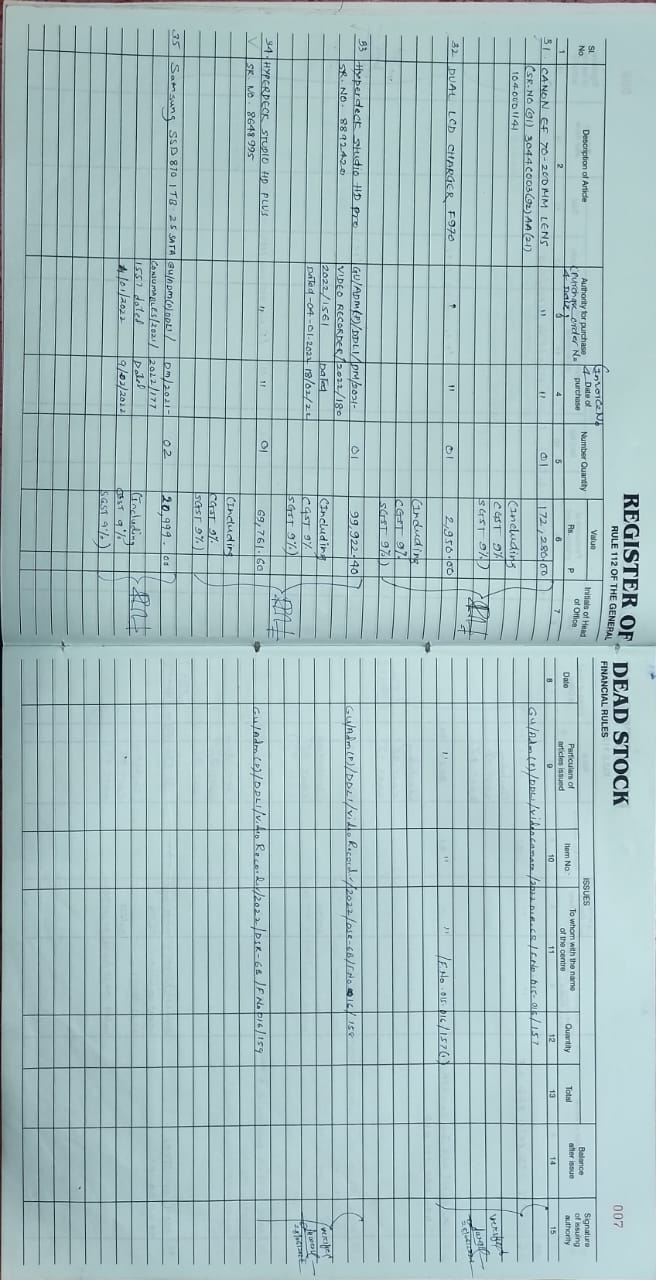 REGISTER OF DEAD STOCK
RULE 112 OF THE GENERAL FINANCIAL RULES
007
Sl. No
Description of Article
Authority for purchase
(Purchase order No
& Date)
Invoice No
& Date of purchase
Number Quantity
Value
Rs. P
Initials of Head of Office
Date
Particulars of articles issued
ISSUES
Item No.
To whom with the name of the centre
Quantity
Total
Balance after issue
Signature of issuing authority
1 2 3 4 5 6 7 8 9 10 11 12 13 14 15
31 CANON EF 70-200MM LENS " " 01 172,280.00
(SR.NO (01) 3044C003(92)AA(21)
1040001141
(Including
CGST 9%
SGST 9%)
GU/Adm(P)/DDLI/Videocamera/2022/DSR-GB/F.No. 015-016/157
32 DUAL LCD CHARGER F970 " " 01 2,950.00
(Including
CGST 9%
SGST 9%)
" " " /F.No. 015-016/157(1)
verified
33 Hyperdeck studio HD Pro GU/ADM(P)/DDLI/ DM/2021- 01 99,922.40
SR. NO. 8892420 VIDEO RECORDER/ 2022/180
2022/1561 Dated
Dated-04-01-2022 18/02/22
(Including
CGST 9%
SGST 9%)
GU/Adm(P)/DDLI/Video Recorder/2022/DSR-GB/F.No 016/158
34. HYPERDECK STUDIO HD PLUS " " 01 69,761.60
SR. NO. 8648995
(Including
CGST 9%
SGST 9%)
GU/Adm(P)/DDLI/Video Recorder/2022/DSR-GB/F.No 016/159
verified
35 Samsung SSD 870 1TB 2.5 SATA GU/ADM(P)DDLI/ DM/2021- 02 20,999.00
CONSUMABLES/2021/ 2022/177
1557 dated Dated
4/01/2022 9/02/2022
(Including
CGST 9%
SGST 9%)